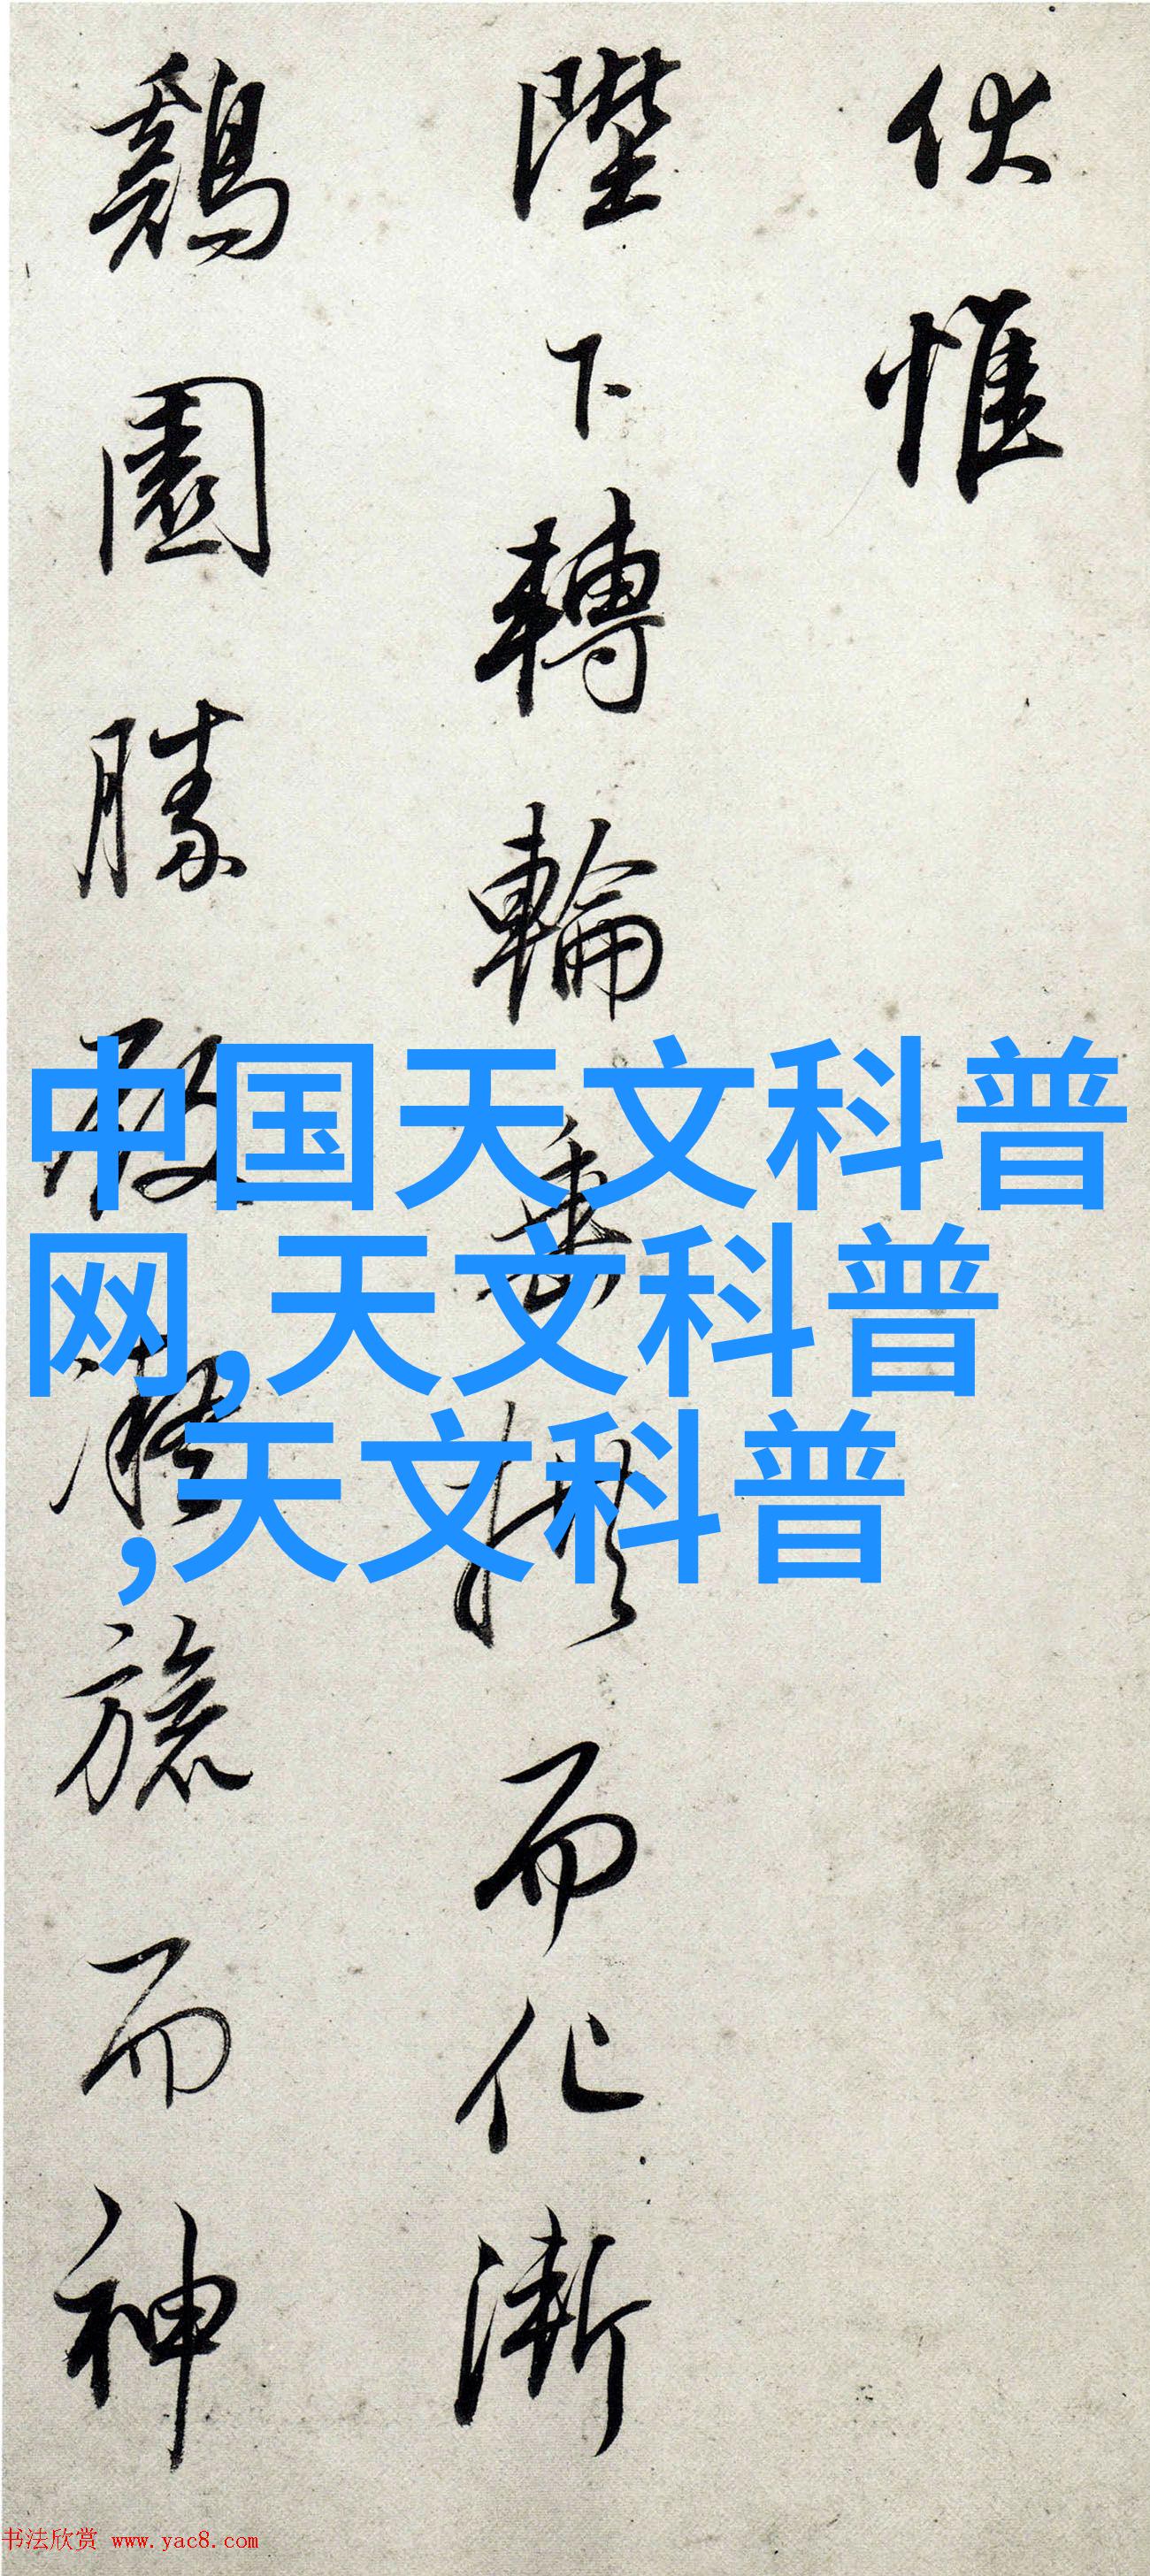 伏惟
陛下轉輪垂拱而化漸
鷄園勝殿凝旒而神
中国天文科普
网,天文科普
,天文科普
书法欣赏 www.yac8.com